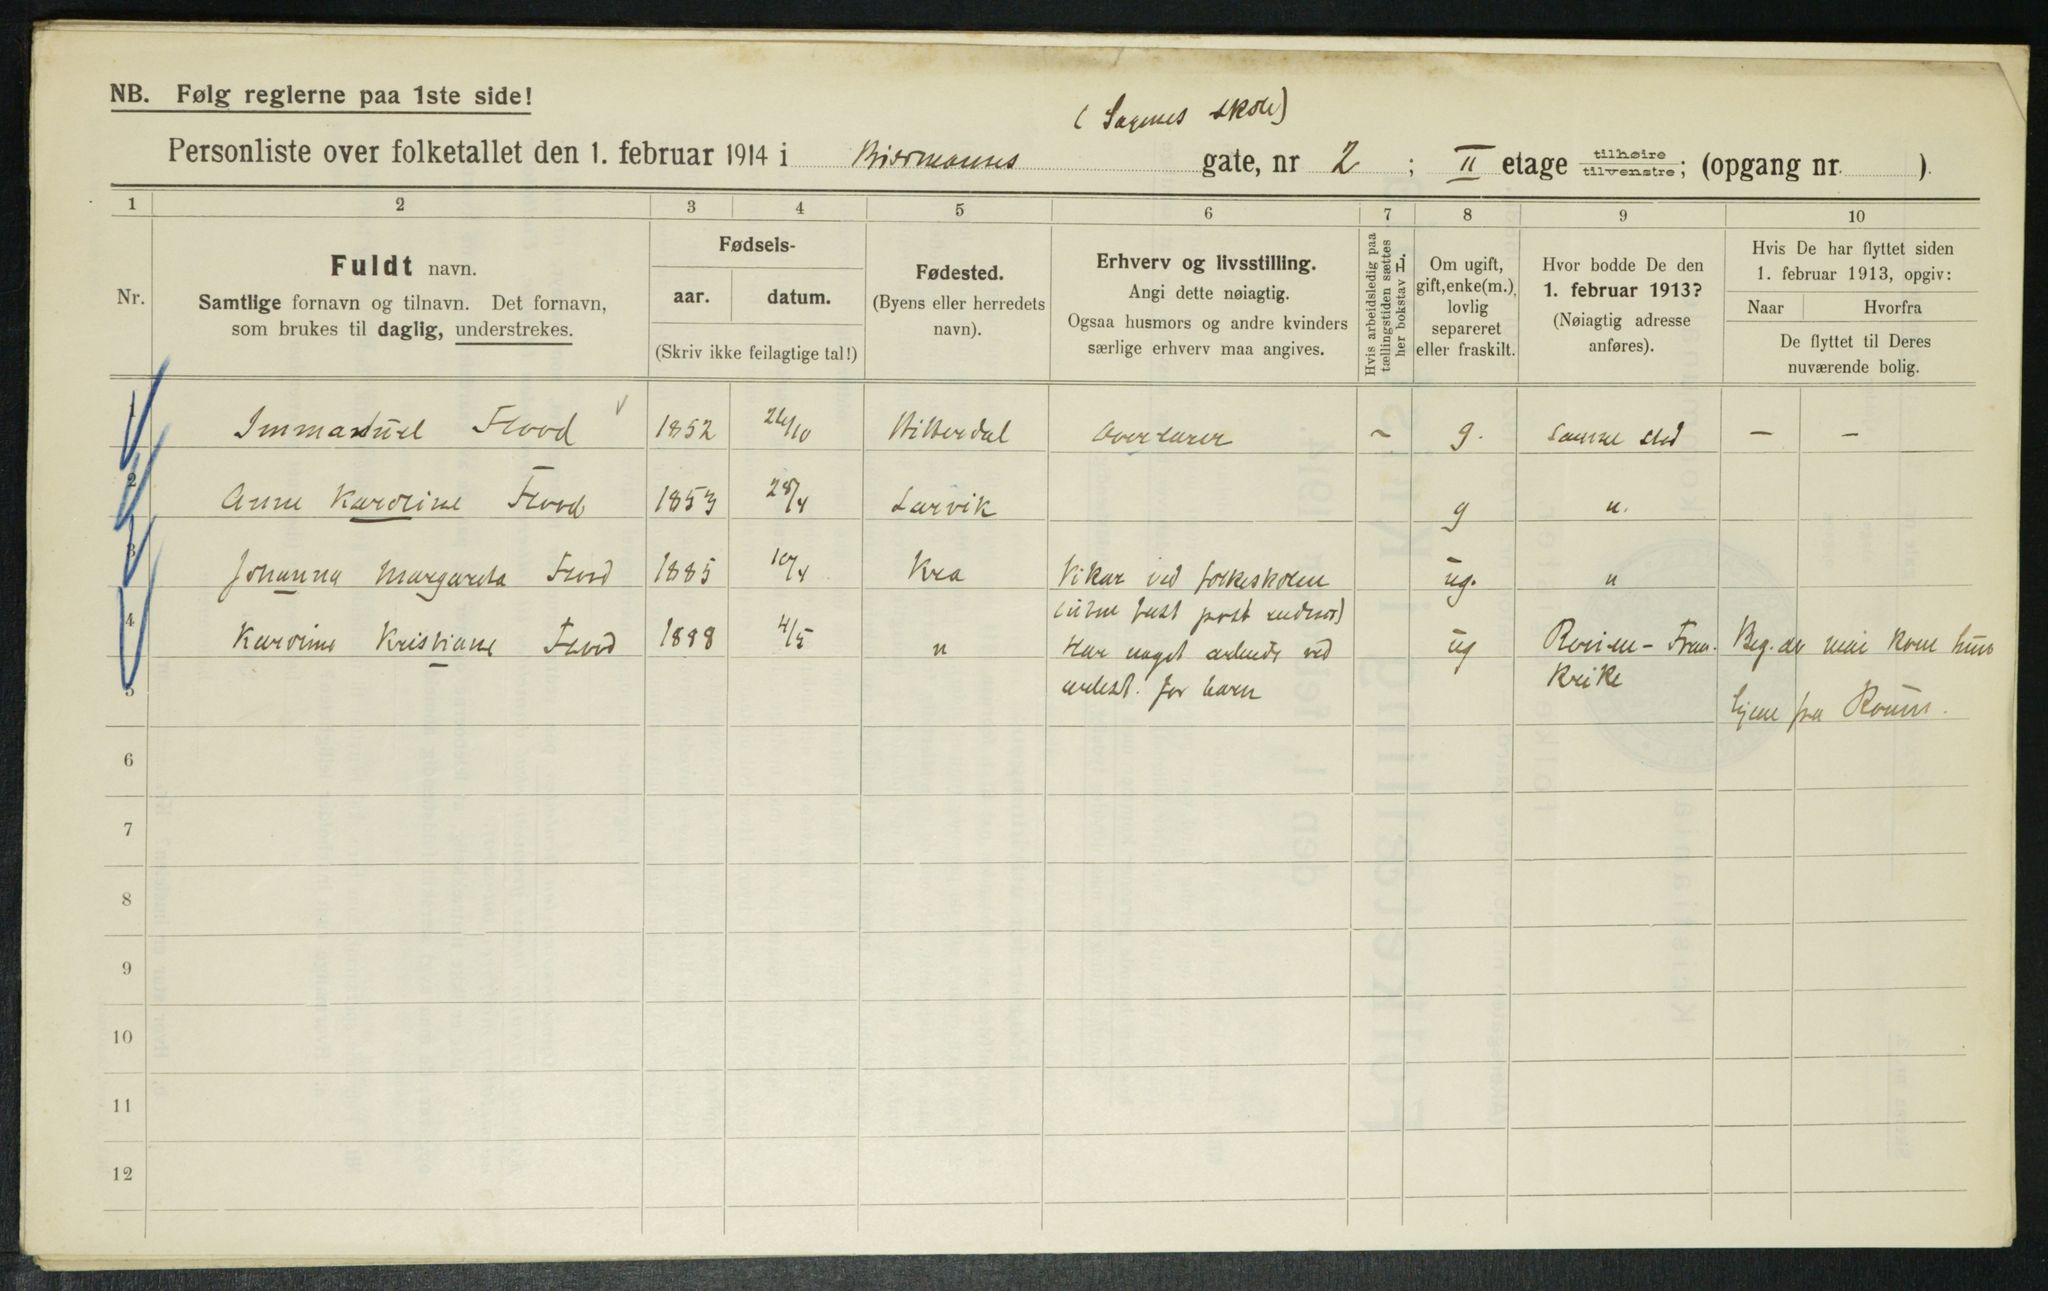 NB. Følg reglerne paa 1ste side!
(Sagenes skole)
Personliste over folketallet den 1. februar 1914 i Biermanns gate, nr 2 ; II etage tilhøire tilvenstre; (opgang nr. ).
1 2 3 4 5 6 7 8 9 10
Nr.
Fuldt navn.
Samtlige fornavn og tilnavn. Det fornavn,
som brukes til daglig, understrekes.
Fødsels-
aar.
datum.
(Skriv ikke feilagtige tal!)
Fødested.
(Byens eller herredets
navn).
Erhverv og livsstilling.
Angi dette nøiagtig.
Ogsaa husmors og andre kvinders
særlige erhverv maa angives.
Hvis arbeidsledig paa
tællingstiden sættes
her bokstav H.
Om ugift,
gift, enke(m.),
lovlig
separeret
eller fraskilt.
Hvor bodde De den
1. februar 1913?
(Nøiagtig adresse
anføres).
Hvis De har flyttet siden
1. februar 1913, opgiv:
Naar Hvorfra
De flyttet til Deres
nuværende bolig.
1 Immanuel Flood 1852 26/10 Hitterdal Overlærer ~ g. samme sted — —
2 Anne Karoline Flood 1853 28/4 Larvik g u.
3 Johanna Margareta Flood 1885 10/4 Kra Vikar ved folkeskolen ug. u
(uten fast post endnu)
4 Karoline Kristiane Flood 1888 4/5 u Har noget arbeide ved ug Rouen - Fran- Beg. av mai kom hun
5 arbest. for barn krike hjem fra Rouen.
6
7
8
9
10
11
12